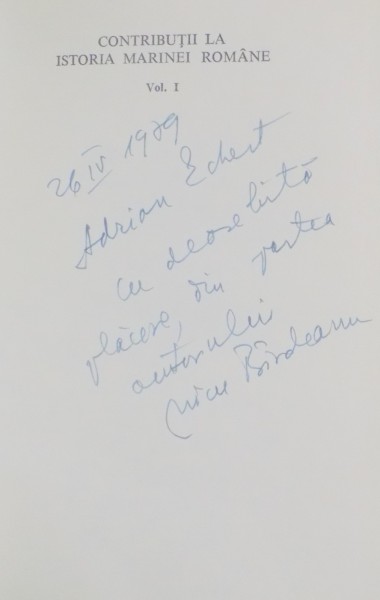 CONTRIBUȚII LA
ISTORIA MARINEI ROMÂNE
Vol. I
26 IV 1989
Adrian Echert
cu deosebită
plăcere, din partea
autorului
Nicu Bîrdeanu